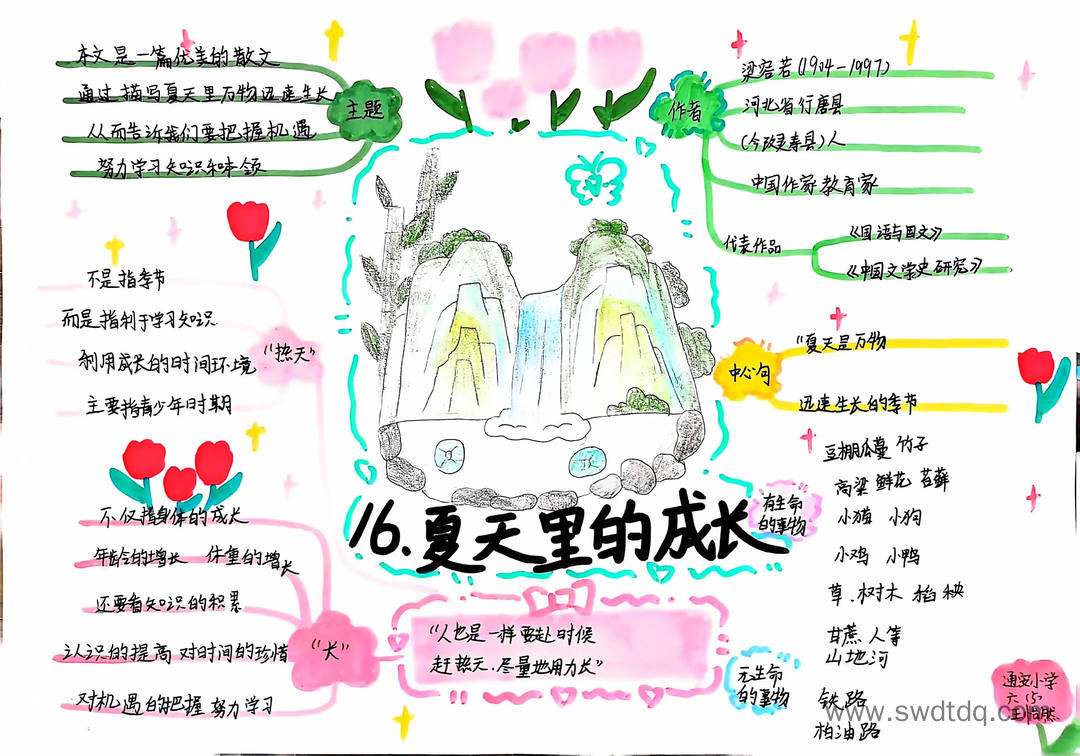 本文是一篇优美的散文
通过描写夏天里万物迅速生长
从而告诉我们要把握机遇
努力学习知识和本领
主题
作者
梁容若(1904-1997)
河北省行唐县
(今改灵寿县)人
中国作家教育家
代表作品
《国语与国文》
《中国文学史研究》
不是指季节
而是指利于学习知识
利用成长的时间环境
主要指青少年时期
"热天"
中心句
"夏天是万物
迅速生长的季节
16.夏天里的成长
有生命
的事物
豆棚瓜蔓 竹子
高粱 鲜花 苔藓
小猫 小狗
小鸡 小鸭
草.树木 稻秧
甘蔗 人等
不仅指身体的成长
年龄的增长 体重的增长
还要看知识的积累
认识的提高 对时间的珍惜
对机遇的把握 努力学习
"长"
"人也是一样要赶时候
赶热天.尽量地用力长"
无生命
的事物
山地河
铁路
柏油路
小学
www.swdtdq.com